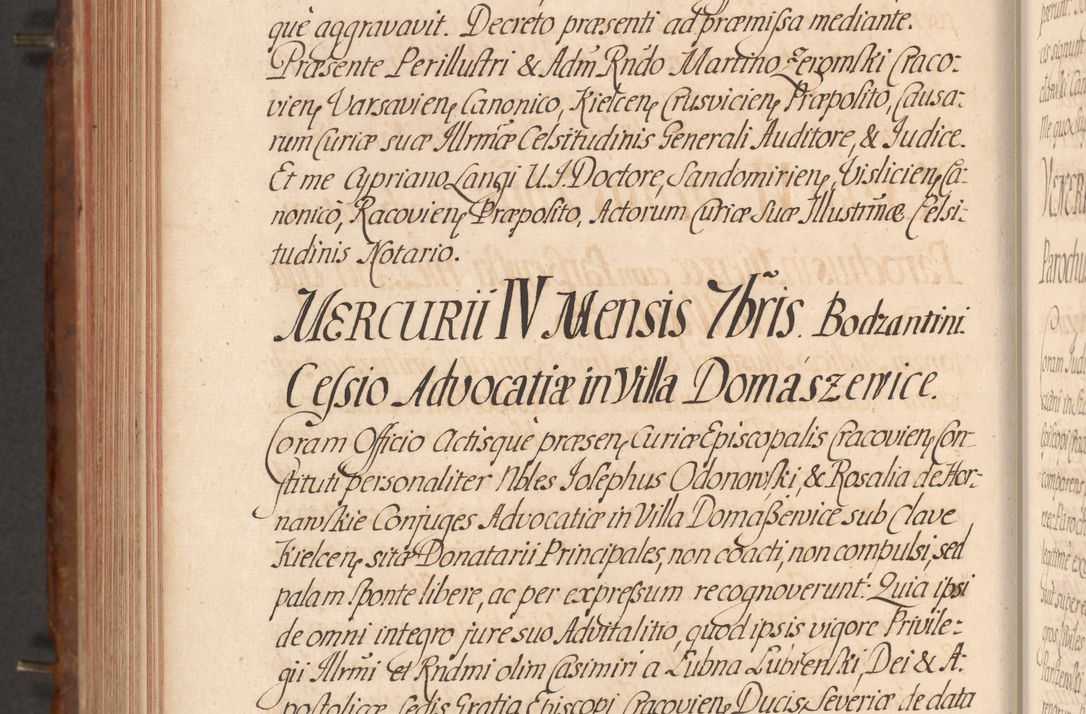 què aggravavit. Decreto præsenti ad præmissa mediante.
Præsente Perillustri & Adm̃ Rñdo Martino Żeromski Craco:
vien, Varsavien, Canonico, Kielcen, Crusvicien, Præposito, Causa:
rum Curiæ suæ Illrmæ Celsitudinis Generali Auditore, & Iudice.
Et me Cypriano Langi U.I. Doctore, Sandomirien, Vislicien, Ca:
nonicō, Racovien, Præposito, Actorum Curiæ Suæ Illustrm̃æ Celsi:
tudinis Notario.
MERCURII IV MENSIS 7bris. Bodzantini.
Cessio Advocatiæ in Villa Domászewice.
Coram Officio Actisquè præsen, Curiæ Episcopalis Cracovien, Con:
stituti personaliter Nbles Iosephus Odonowski, & Rosalia de Hor:
nawskie Conjuges Advocatiæ in Villa Domaßewicè sub Clave
Kielcen, sitæ Donatarii Principales, non coacti, non compulsi, sed
palam sponte libere, ac per expressum recognoverunt: Quia ipsi
de omni integro jure suo Advitalitio, quod ipsis vigore Privile:
gii Illrm̃i et Rndmi olim Casimiri à Łubna Łubieński, Dei & A:
postolicæ Sedis Gratia Episcopi Cracovien, Ducis Severiæ de data